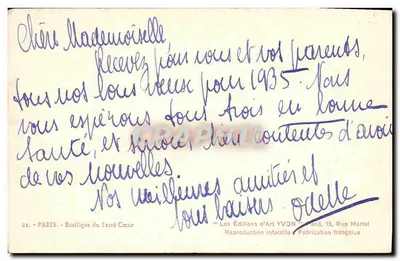 Chère Mademoiselle
Recevez pour vous et vos parents,
tous nos bons vœux pour 1935. Nous
vous espérons tous trois en bonne
santé, et serions bien contentes d'avoir
de vos nouvelles.
Nos meilleures amitiés et
bons baisers. Odette
22. - PARIS. - Basilique du Sacré Cœur
Les Éditions d'Art YVON, Paris, 15, Rue Martel
Reproduction interdite - Fabrication française